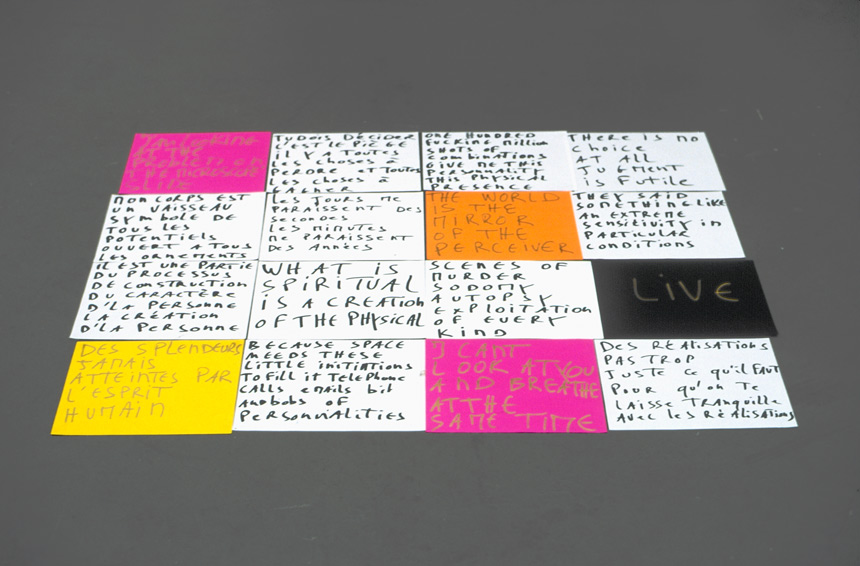 AT THE
PROBLEM ON
THE MICROSCOPE
SLIDE
TU DOIS DÉCIDER
C'EST LE PIÈGE
IL Y A TOUTES
LES CHOSES À
PERDRE ET TOUTES
LES CHOSES À
GAGNER
ONE HUNDRED
FUCKING MILLION
SHOTS OF
COMBINATIONS
GIVE ME THIS
PERSONNALITY
THIS PHYSICAL
PRESENCE
THERE IS NO
CHOICE
AT ALL
JUGMENT
IS FUTILE
MON CORPS EST
UN VAISSEAU
SYMBOLE DE
TOUS LES
POTENTIELS
OUVERT A TOUS
LES ORNEMENTS
LES JOURS ME
PARAISSENT DES
SECONDES
LES MINUTES
ME PARAISSENT
DES ANNÉES
THE WORLD
IS THE
MIRROR
OF THE
PERCEIVER
THEY SAID
SOMETHING LIKE
AN EXTREME
SENSITIVITY IN
PARTICULAR
CONDITIONS
IL EST UNE PARTIE
DU PROCESSUS
DE CONSTRUCTION
DU CARACTÈRE
D'LA PERSONNE
LA CRÉATION
D'LA PERSONNE
WHAT IS
SPIRITUAL
IS A CREATION
OF THE PHYSICAL
SCENES OF
MURDER
SODOMY
AUTOPSY
EXPLOITATION
OF EVERY
KIND
LIVE
DES SPLENDEURS
JAMAIS
ATTEINTES PAR
L'ESPRIT
HUMAIN
BECAUSE SPACE
NEEDS THESE
LITTLE INITIATIONS
TO FILL IT TELEPHONE
CALLS EMAILS BIT
AND BOBS OF
PERSONNALITIES
I CANT
LOOK AT YOU
AND BREATHE
AT THE
SAME TIME
DES RÉALISATIONS
PAS TROP
JUSTE CE QU'IL FAUT
POUR QU'ON TE
LAISSE TRANQUILLE
AVEC LES RÉALISATIONS